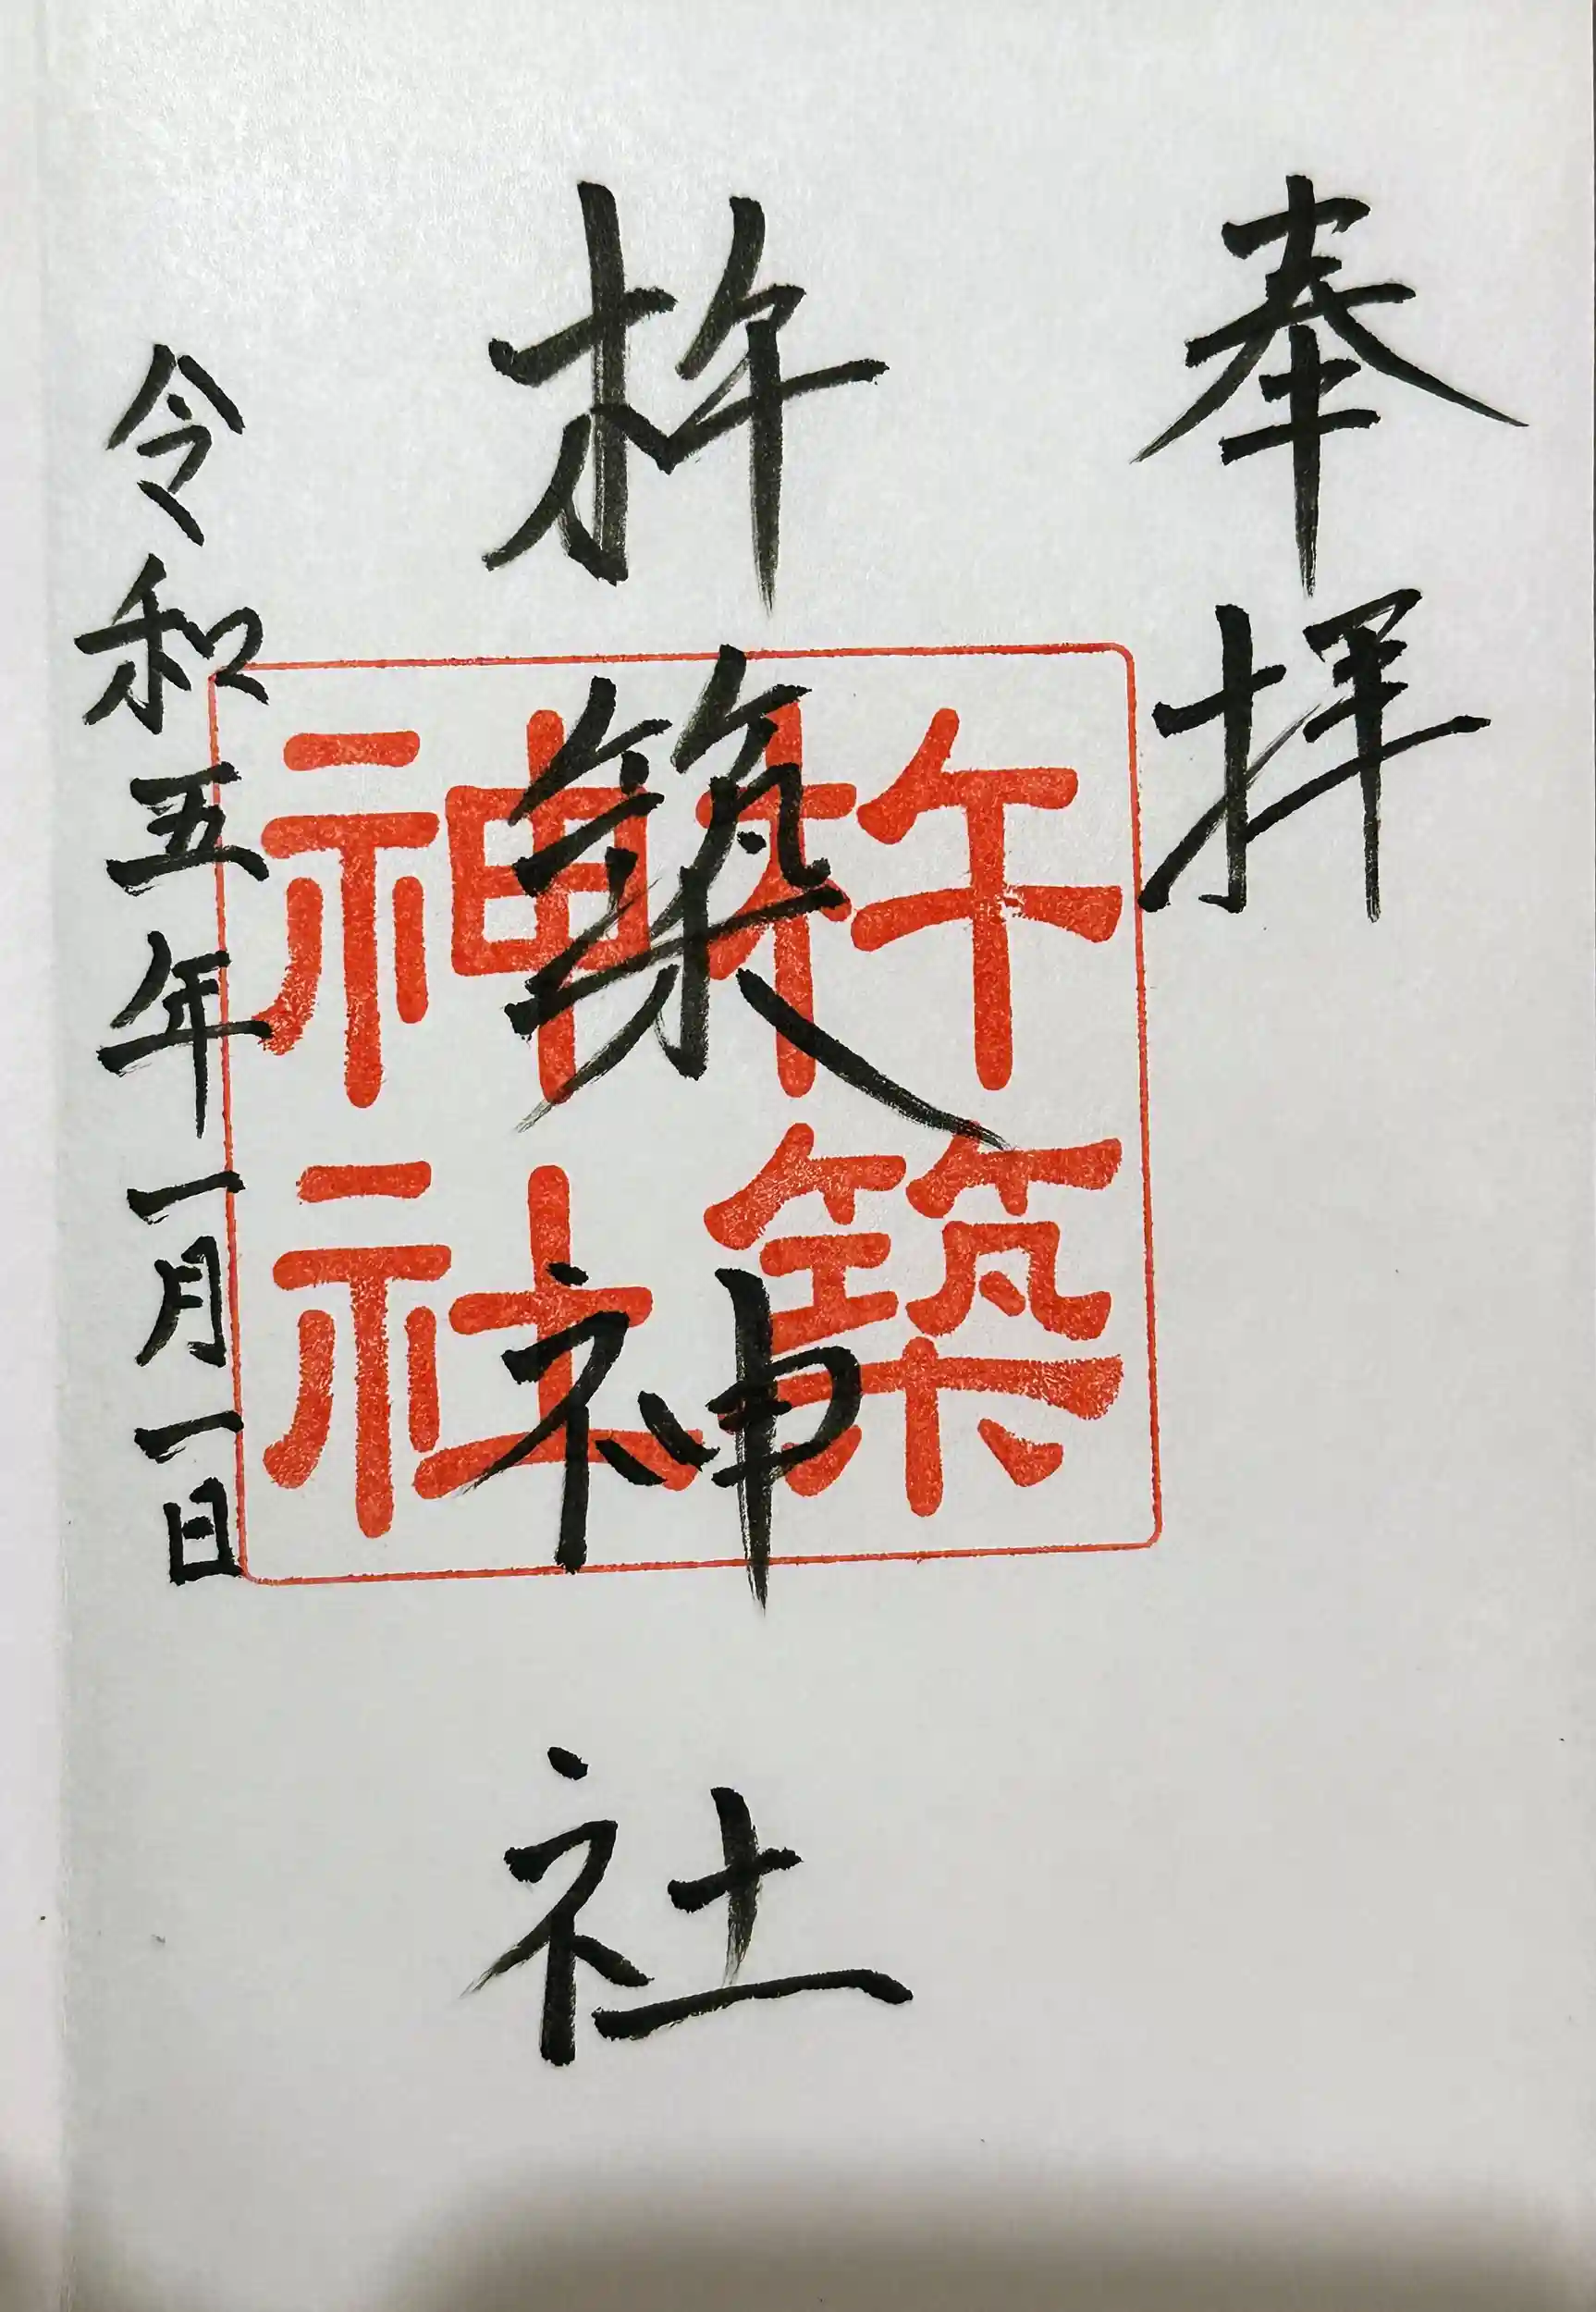 奉拝
杵築神社
杵築
神社
令和五年一月一日